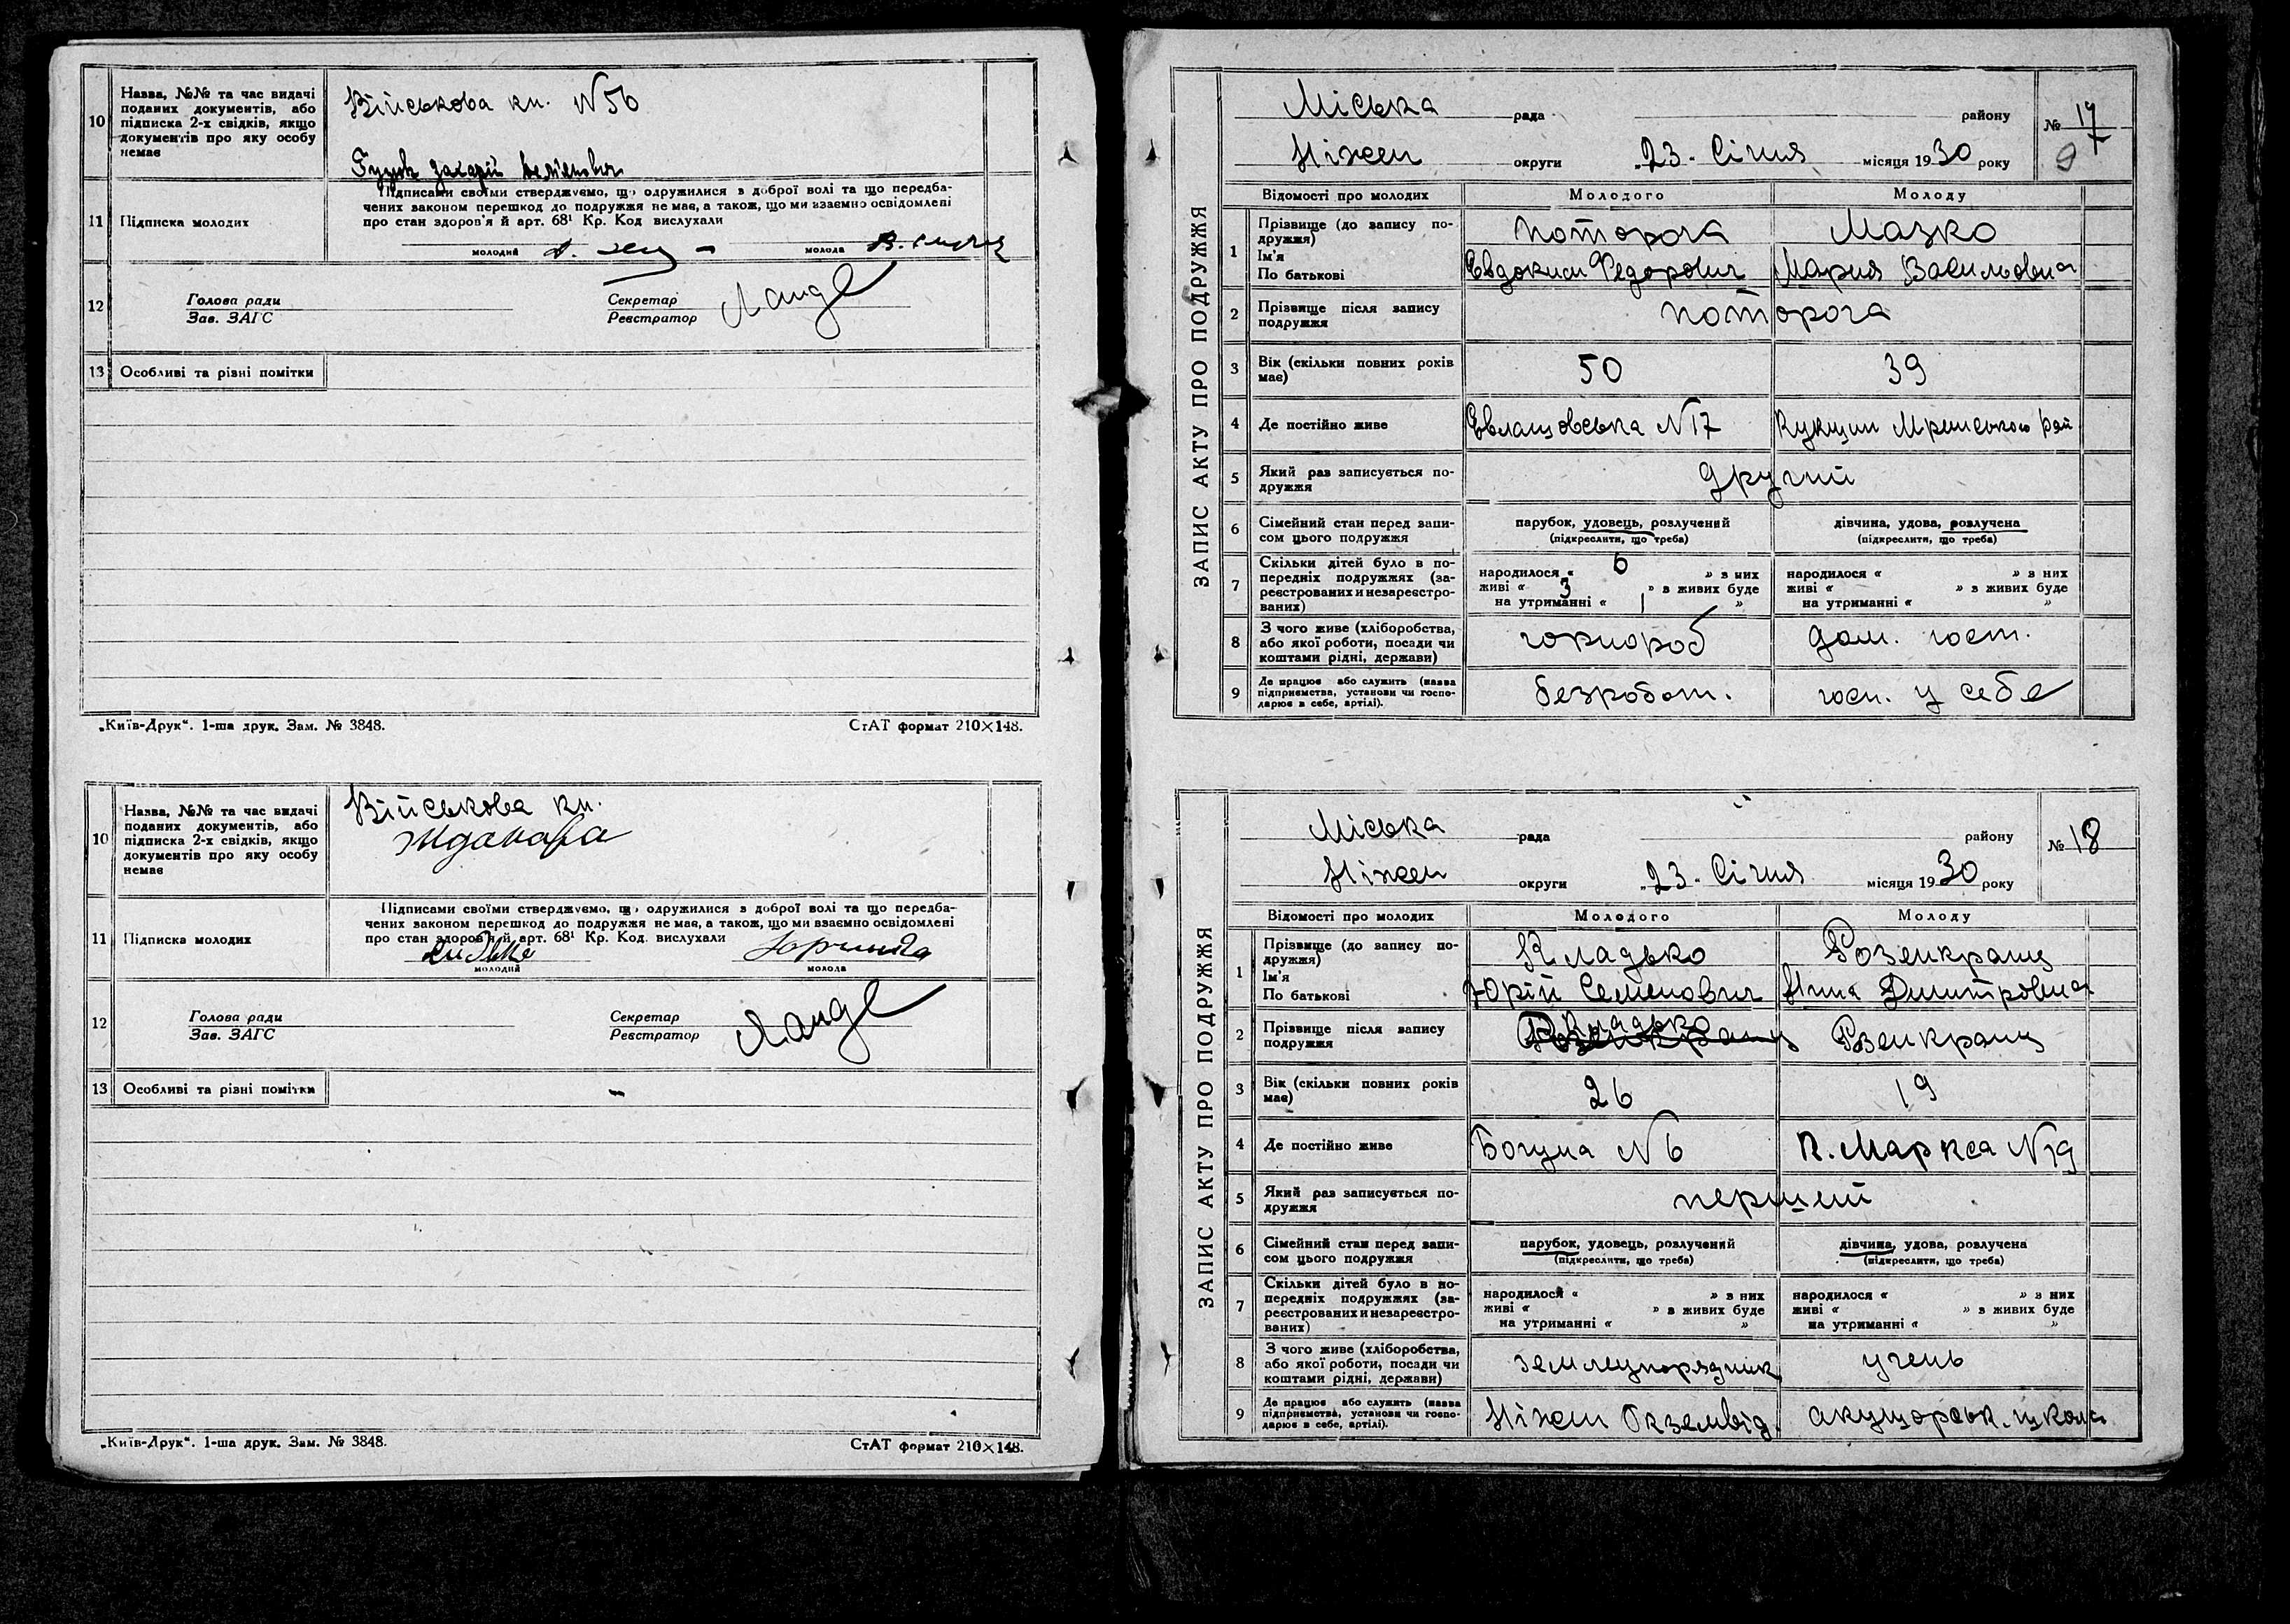 10
Назва, №№ та час видачі
поданих документів, або
підписка 2-х свідків, якщо
документів про яку особу
немає
Військова кн. N 56
11
Підписка молодих
Підписами своїми стверджуємо, що одружилися з доброї волі та що передба-
чених законом перешкод до подружжя не має, а також, що ми взаємно освідомлені
про стан здоров'я й арт. 68¹ Кр. Код вислухали
молодий
молода
12
Голова ради
Зав. ЗАГС
Секретар
Реєстратор
13
Особливі та різні помітки
„Київ-Друк“. 1-ша друк. Зам. № 3848.
СтАТ формат 210×148.
10
Назва, №№ та час видачі
поданих документів, або
підписка 2-х свідків, якщо
документів про яку особу
немає
Військова кн.
11
Підписка молодих
Підписами своїми стверджуємо, що одружилися з доброї волі та що передба-
чених законом перешкод до подружжя не має, а також, що ми взаємно освідомлені
про стан здоров'я й арт. 68¹ Кр. Код. вислухали
молодий
молода
12
Голова ради
Зав. ЗАГС
Секретар
Реєстратор
13
Особливі та різні помітки
„Київ-Друк“. 1-ша друк. Зам. № 3848.
СтАТ формат 210×148.
ЗАПИС АКТУ ПРО ПОДРУЖЖЯ
Міська рада району
№ 17
9
Ніжен округи „23„ Січня місяця 1930 року
Відомості про молодих Молодого Молоду
1
Прізвище (до запису по-
дружжя)
Ім'я
По батькові
Поторога Мазко
Евдоким Федорович Мария Васильовна
2
Прізвище після запису
подружжя
Поторога
3
Вік (скільки повних років
має)
50 39
4
Де постійно живе
Евлашовська N 17 Кукшин Мринського рай
5
Який раз записується по-
дружжя
другий
6
Сімейний стан перед запи-
сом цього подружжя
парубок, удовець, розлучений
(підкреслити, що треба)
дівчина, удова, розлучена
(підкреслити, що треба)
7
Скільки дітей було в по-
передніх подружжях (за-
реєстрованих и незареєстро-
ваних)
народилося « 6 » з них
живі « 3 » з живих буде
на утриманні « 1 »
народилося « » з них
живі « » з живих буде
на утриманні « »
8
З чого живе (хліборобства,
або якої роботи, посади чи
коштами рідні, держави)
чорнороб дом. госп.
9
Де працює або служить (назва
підприємства, установи чи госпо-
дарює в себе, артілі).
безробот. госп. у себе
ЗАПИС АКТУ ПРО ПОДРУЖЖЯ
Міська рада району
№ 18
Ніжен округи „23„ Січня місяця 1930 року
Відомості про молодих Молодого Молоду
1
Прізвище (до запису по-
дружжя)
Ім'я
По батькові
Кладько Розенкранц
Юрій Семенович Нина Дмитровна
2
Прізвище після запису
подружжя
Кладько
Розенкранц Рзенкранц
3
Вік (скільки повних років
має)
26 19
4
Де постійно живе
Богуна N 6 К. Маркса N 19
5
Який раз записується по-
дружжя
перший
6
Сімейний стан перед запи-
сом цього подружжя
парубок, удовець, розлучений
(підкреслити, що треба)
дівчина, удова, розлучена
(підкреслити, що треба)
7
Скільки дітей було в по-
передніх подружжях (за-
реєстрованих и незареєстро-
ваних)
народилося « » з них
живі « » з живих буде
на утриманні « »
народилося « » з них
живі « » з живих буде
на утриманні « »
8
З чого живе (хліборобства,
або якої роботи, посади чи
коштами рідні, держави)
землеупорядник учень
9
Де працює або служить (назва
підприємства, установи чи госпо-
дарює в себе, артілі).
Ніжен Окземвід. акушорськ. школа